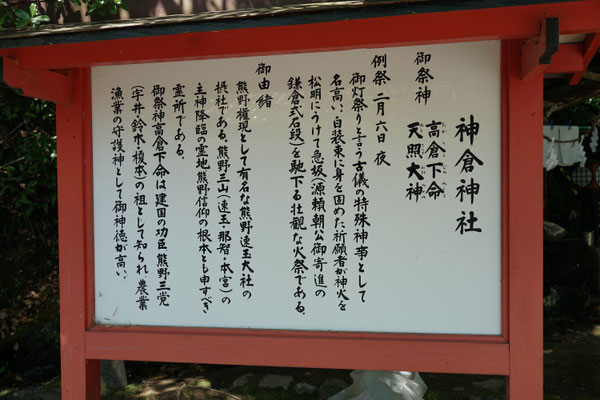 神倉神社
御祭神
高倉下命
天照大神
例祭 二月六日 夜
御灯祭りと言う古儀の特殊神事として
名高い、白装束に身を固めた祈願者が神火を
松明にうけて急坂(源頼朝公御寄進の
鎌倉式石段)を馳下る壮観な火祭である。
御由緒
熊野権現として有名な熊野速玉大社の
摂社である。熊野三山(速玉・那智・本宮)の
主神降臨の霊地熊野信仰の根本とも申すべき
霊所である。
御祭神高倉下命は建国の功臣熊野三党
(宇井・鈴木・榎本)の祖として知られ農業
漁業の守護神として御神徳が高い。